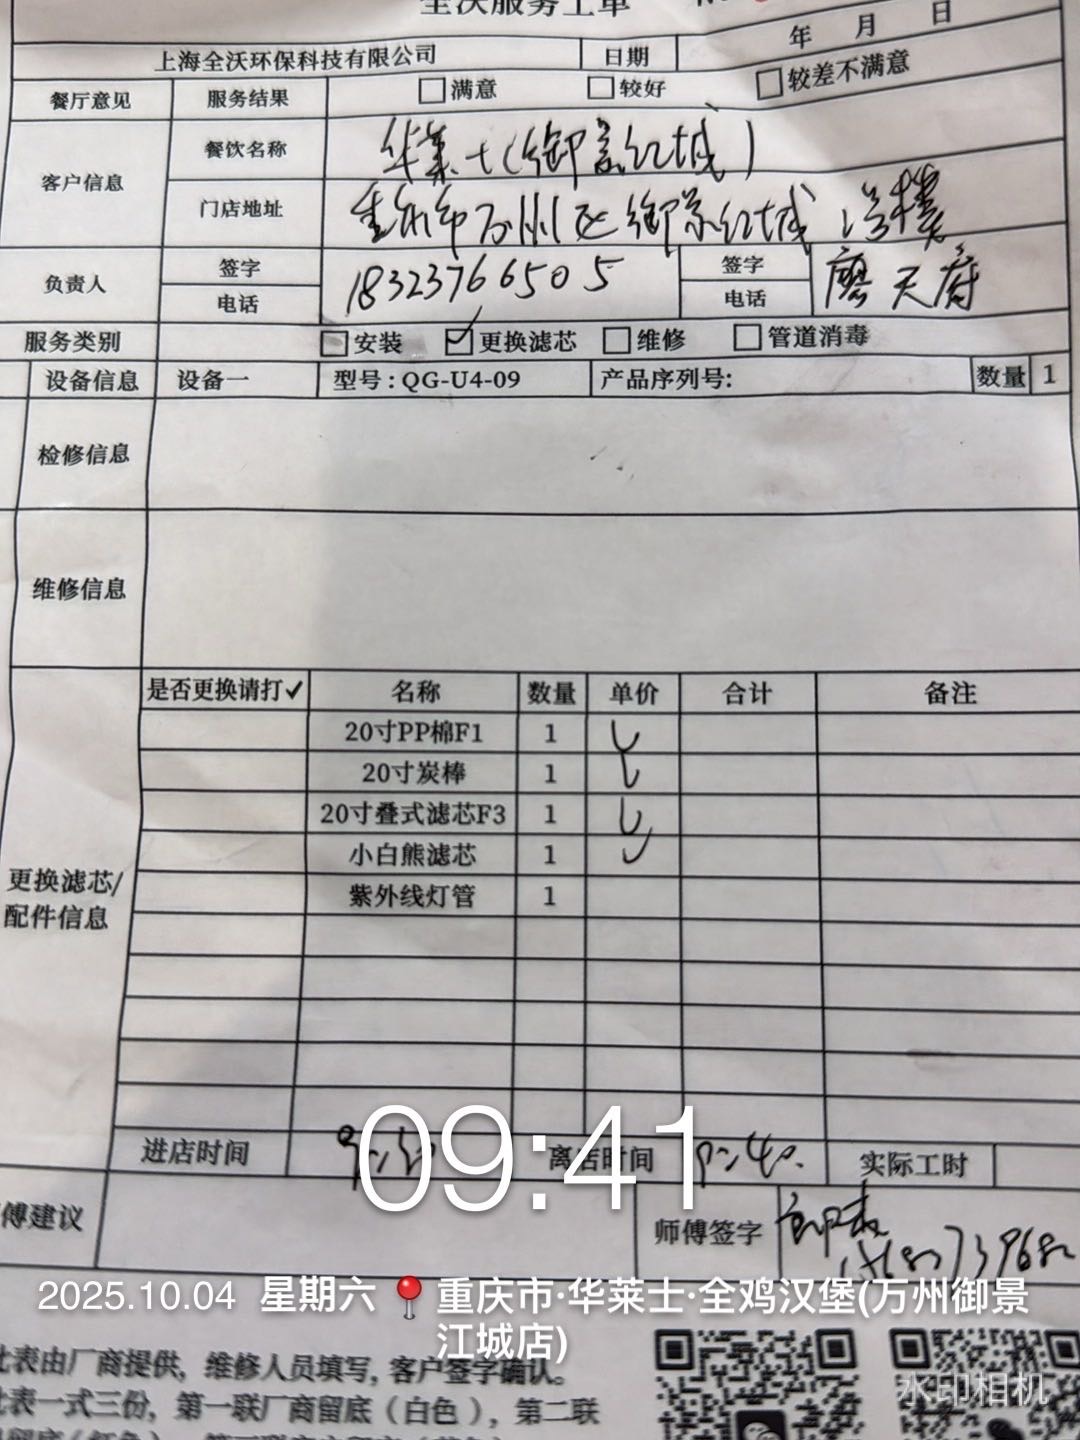 全沃服务工单
年 月 日
上海全沃环保科技有限公司 日期
餐厅意见 服务结果 满意 较好 较差不满意
客户信息 餐饮名称 华莱士(御景江城)
门店地址 重庆市万州区御景江城 号楼
负责人 签字 签字
电话 18323766505 电话
服务类别 安装 更换滤芯 维修 管道消毒
设备信息 设备一 型号:QG-U4-09 产品序列号: 数量 1
检修信息
维修信息
是否更换请打✓ 名称 数量 单价 合计 备注
20寸PP棉F1 1 ✓
20寸炭棒 1 ✓
20寸叠式滤芯F3 1 ✓
小白熊滤芯 1 ✓
紫外线灯管 1
更换滤芯/
配件信息
进店时间 离店时间 9:40 实际工时
09:41
傅建议 师傅签字
2025.10.04 星期六 重庆市·华莱士·全鸡汉堡(万州御景
江城店)
此表由厂商提供,维修人员填写,客户签字确认。
此表一式三份,第一联厂商留底(白色),第二联
水印相机